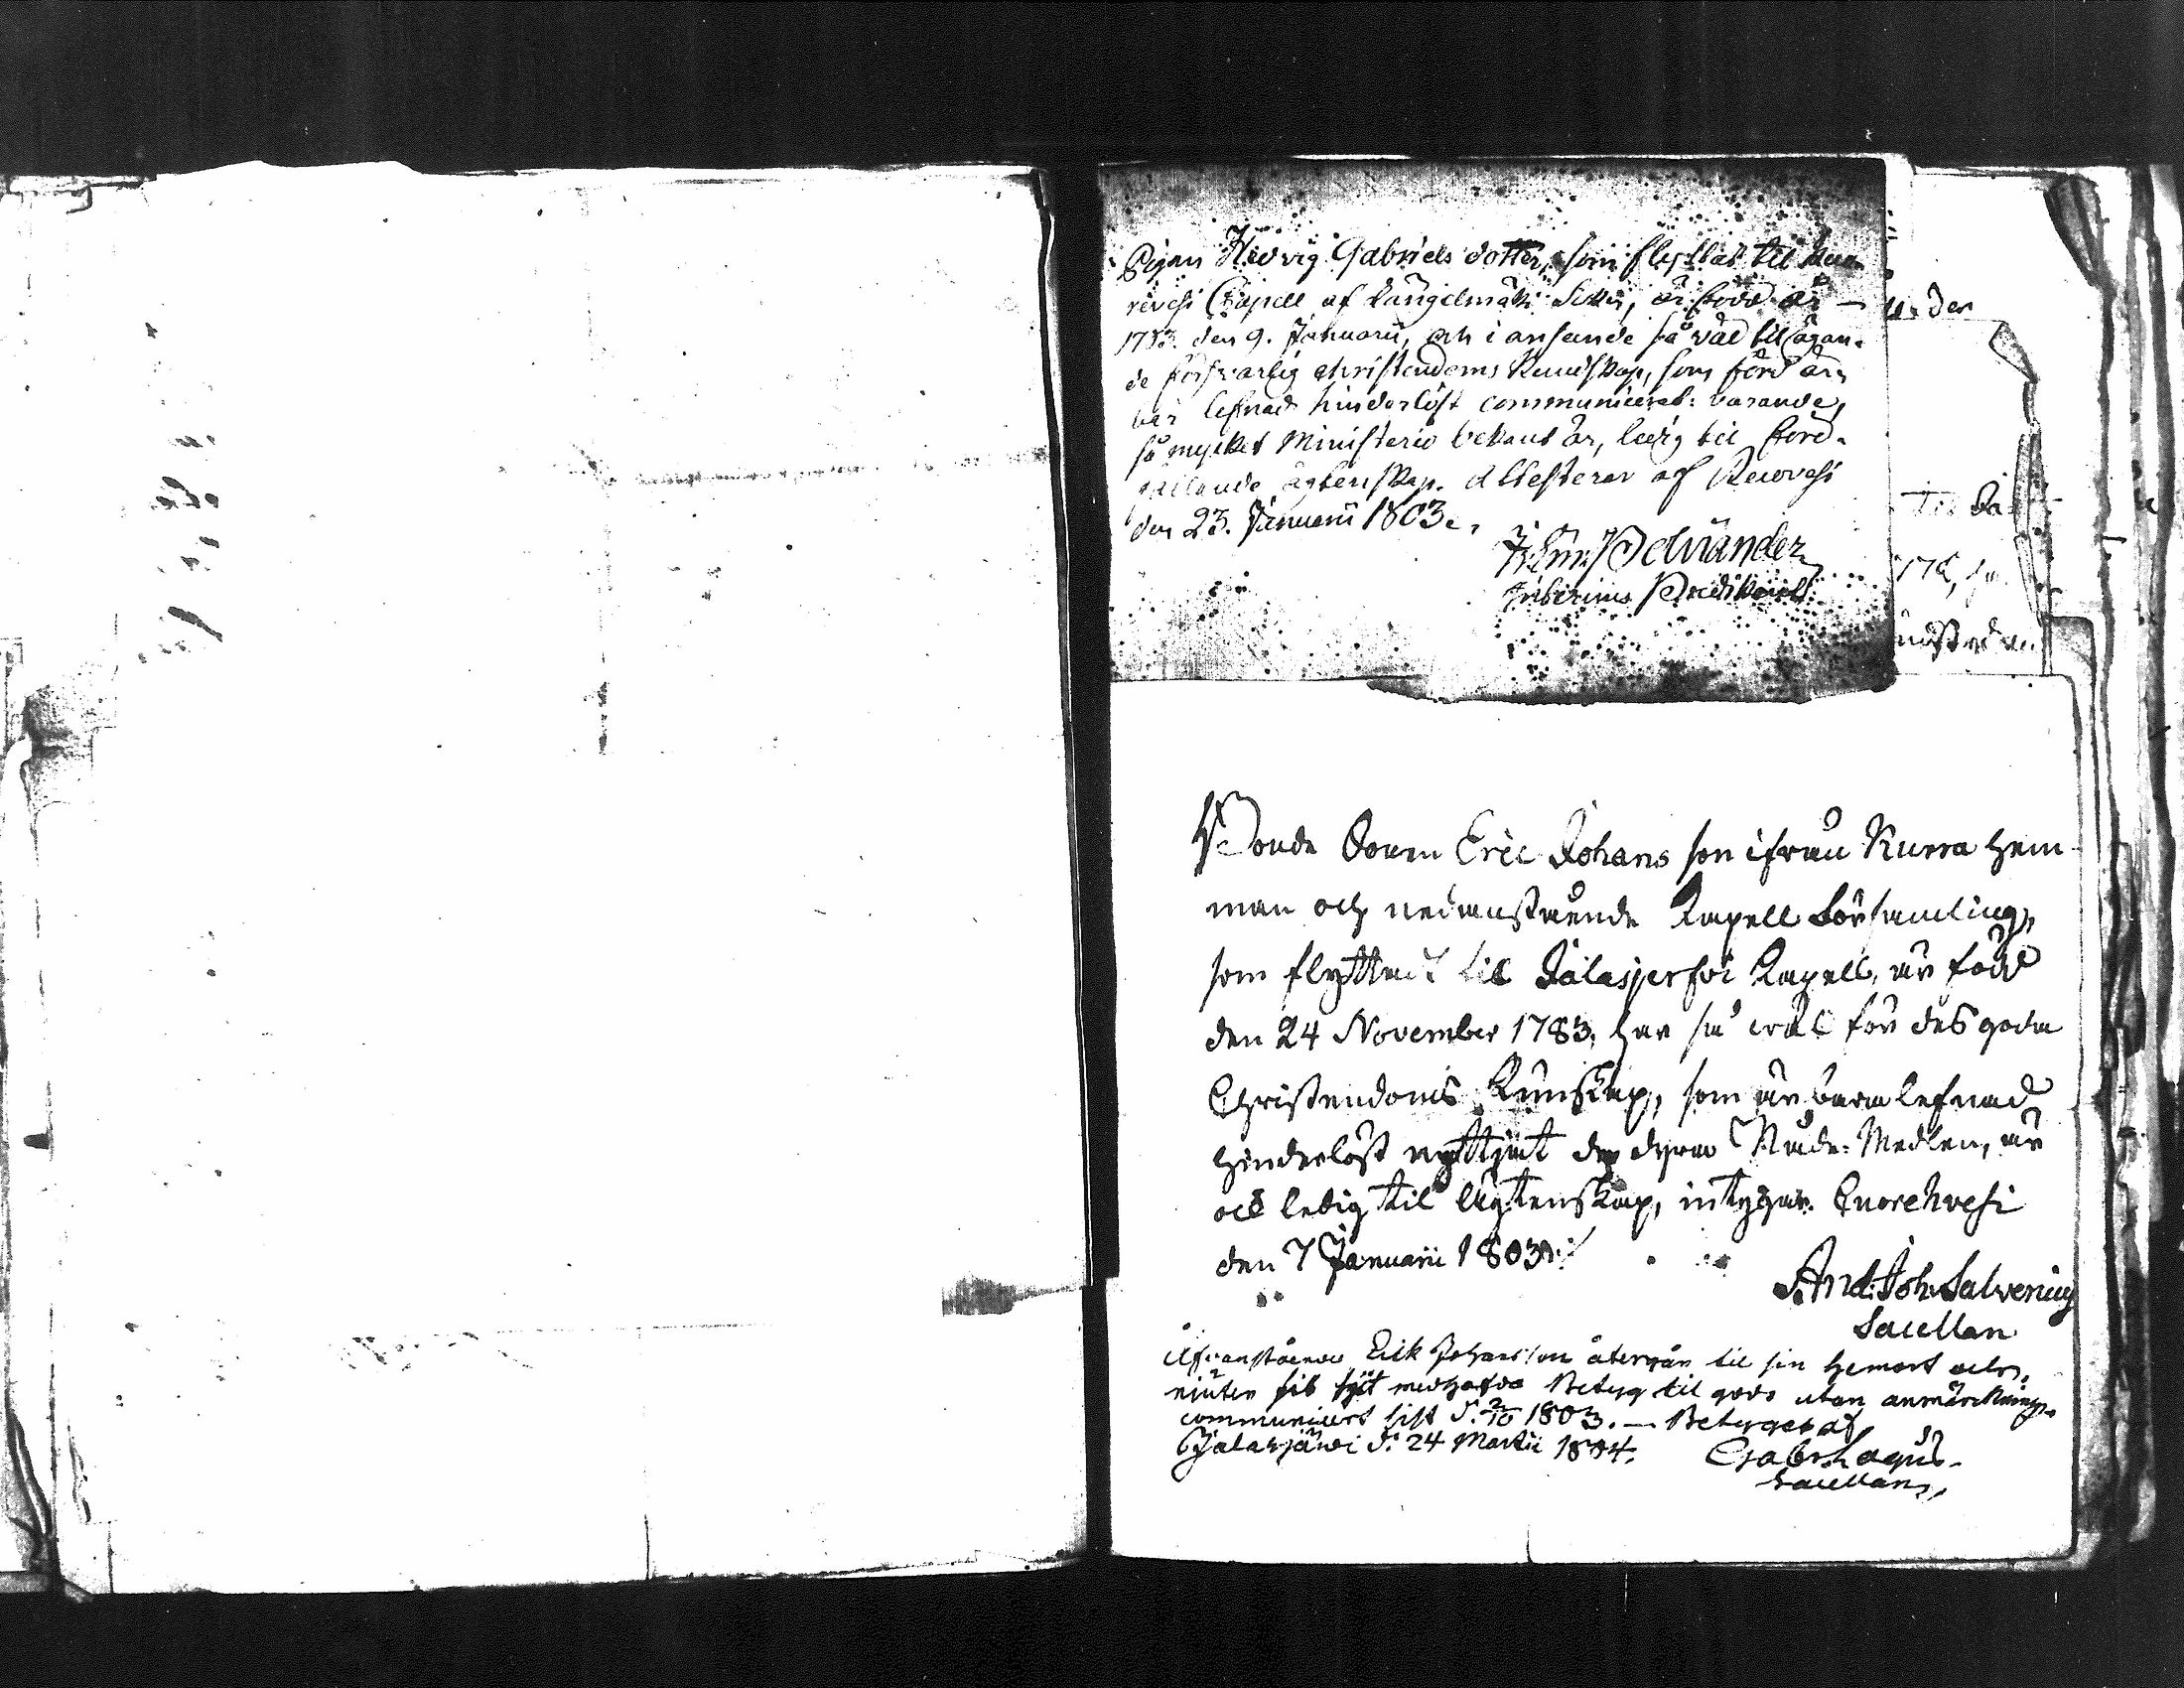 Pigan Hedvig Gabriels dotter, som flyttat til Keu-
revesi Capell af Längelmäki Sokn, är född år
1783. den 9. Januarii, och i anseende så väl til ägan-
de försvarlig christendoms Kundskap, som förd är-
bar lefnad hinderlöst communicerat: varande,
så mycket Ministerio bekant är, ledig til före-
fallande ägtenskap. Attesterar af Keurvesi
den 23. Januarii 1803.
Selviander
Predikant
u. der
176,
Bonde Sonen Eric Johans son ifrån Kurra Hem-
man och nedanstående Kapell Församling,
som flyttadt til Jalasjerfvi Kapell, är född
den 24 November 1783, har så wäl för des goda
Christendoms Kunskap, som ärbara lefnad
hinderlöst nyttjat de dyra Nåde-Medlen, är
ock ledig til Ägtenskap, intygar. Quorehvesi
den 7 Januarii 1803
And. Joh. Salvenius
Sacellan
Ofvanstående Erik Johansson återgår til sin hemort och
niuter sit hit medhafda Betyg til godo utan anmärckning.
communicert sist d. 2/10 1803. — Betygat af
Jalasjärvi d. 24 Martii 1804. Gabr. Lagus
Sacellan